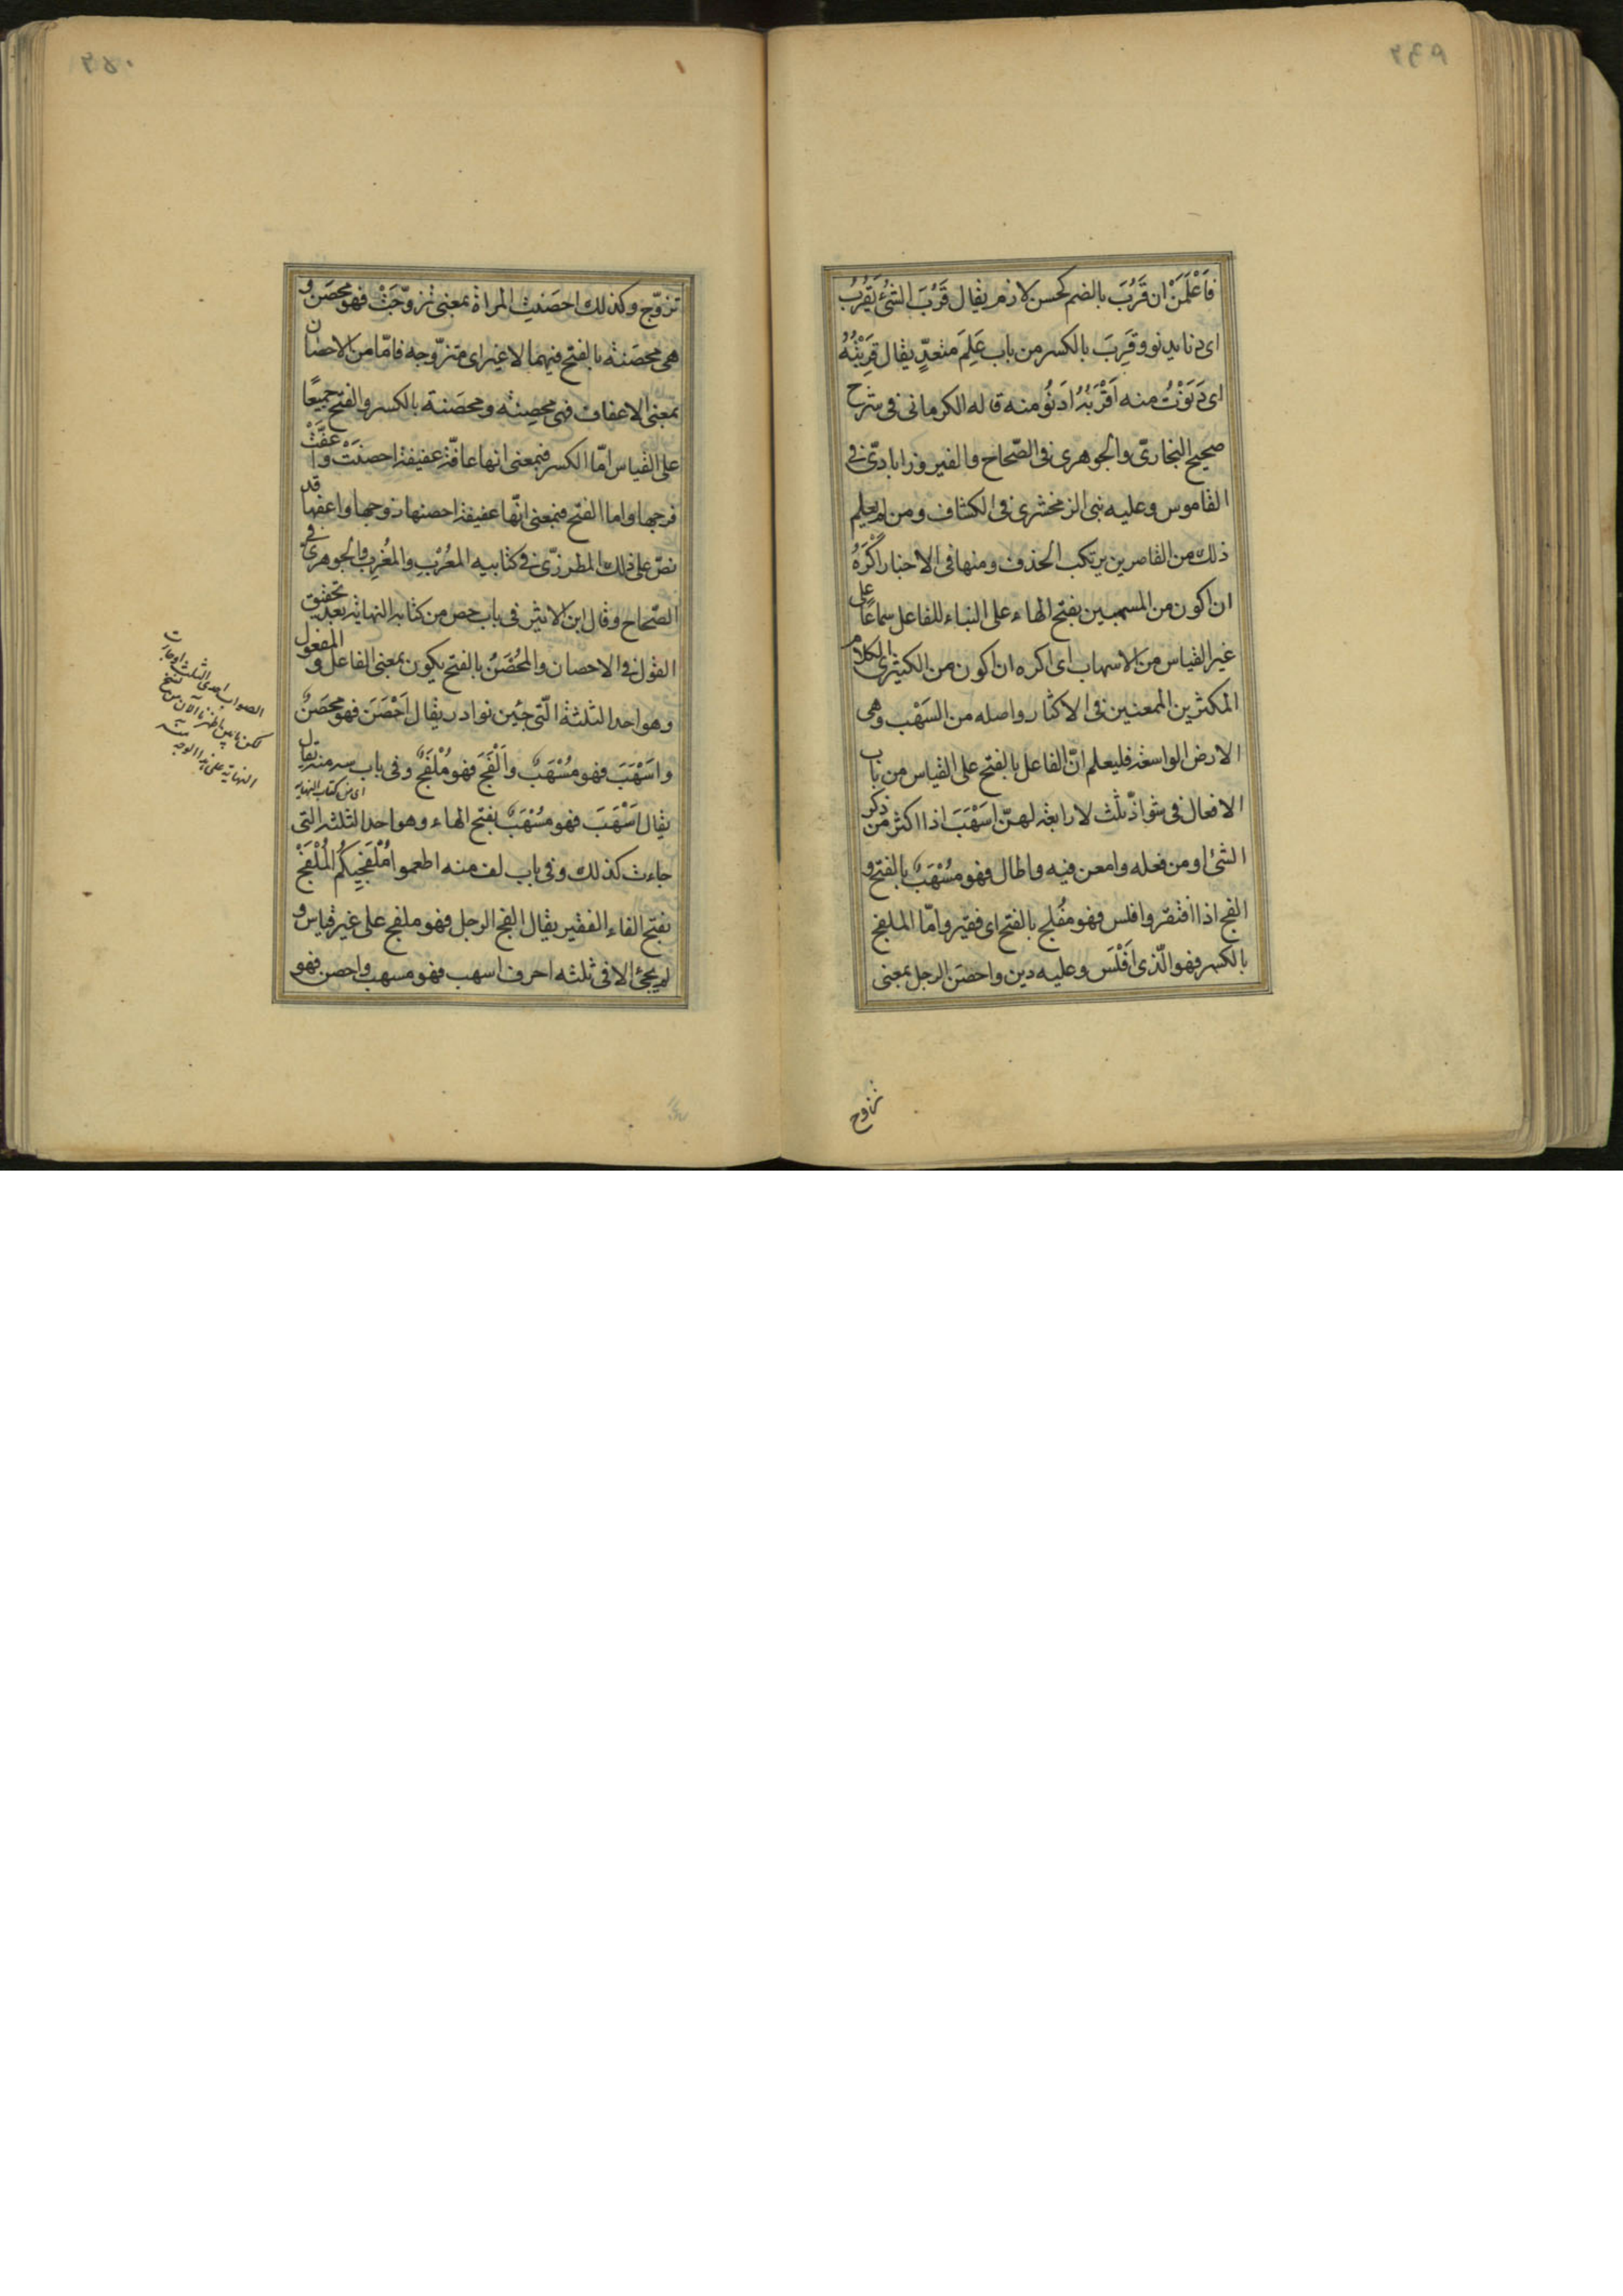 فَاعْلَمَنْ ان قَرُبَ بالضم كحسن لازم يقال قَرُبَ الشئ يَقْرُبُ
اى دنا يدنو وقَرِبَ بالكسر من باب عَلِمَ متعدٍّ يقال قَرِبْتُهُ
اى دَنَوْتُ منه اَقْرَبُهُ اَدنُو منه قاله الكرمانى فى شرح
صحيح البخارىّ والجوهرى فى الصّحاح والفيروزابادىّ فى
القاموس وعليه بنى الزمخشرى فى الكشاف ومن لم يعلم
ذلك من القاصرين يرتكب الحذف ومنها فى الاخبار اَكْرَهُ
ان اكون من المسهبين بفتح الهاء على البناء للفاعل سماعًا على
غير القياس من الاسهاب اى اكره ان اكون من الكثيرى الكلام
المكثرين الممعنين فى الاكثار واصله من السَهْب وهى
الارض الواسعة فليعلم انّ الفاعل بالفتح على القياس من باب
الافعال فى شواذّ ثلث لا رابعة لهنّ اَسْهَبَ اذا اكثر من ذكر
الشئ او من فعله وامعن فيه واطال فهو مُسْهَبٌ بالفتح و
الفج اذا افتقر وافلس فهو مُفلج بالفتح اى فقير وامّا الملفج
بالكسر فهو الّذى اَفْلَسَ وعليه دين واحصَن الرجل بمعنى
تزوج
تزوّج وكذلك احصَنتِ المراة بمعنى تزوّجَتْ فهو محصَن و
هى محصَنة بالفتح فيهما لا غير اى متزوّجه فامّا من الاحصان
بمعنى الاعفاف فهى محصِنة ومحصَنة بالكسر والفتح جميعًا
على القياس امّا الكسر فبمعنى انها عافّة عفيفة احصنَتْ واعفَّتْ
فرجها واما الفتح فبمعنى انّها عفيفة احصنها زوجها واعفها قد
نصّ على ذلك المطرزىّ فى كتابيه المعْرِب والمُغرِب والجوهرىّ فى
الصّحاح وقال ابن الاثير فى باب حصن من كتابه النهاية بعد تحقيق
القول فى الاحصان والمُحْصَنُ بالفتح يكون بمعنى الفاعل و المفعول
وهو احد الثلثة الّتى جئن نوادر يقال اَحْصَنَ فهو محصَنٌ
واسْهَبَ فهو مُسْهَبٌ واَلْفَجَ فهو مُلْفَجٌ وفى باب سه منه يقال
اى من كتاب النهاية
يقال اَسْهَبَ فهو مُسْهَبٌ بفتح الهاء وهو احد الثلثة التى
جاءت كذلك وفى باب لف منه اطعموا مُلْفَجِيكُم المُلْفَجْ
بفتح الفاء الفقير يقال الفج الرجل فهو ملفج على غير قياس و
لم يجئ الا فى ثلثه احرف اسهب فهو مسهب واحصن فهو
الصواب احدى الثلث او جاءت
النهاية على هذا الوجه